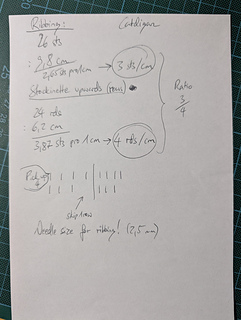 Ribbing: Cardigan
26 sts
: 9,8 cm
2,65 sts pro 1 cm → 3 sts/cm
Stockinette upwards (rows)
24 rds
: 6,2 cm
3,87 sts pro 1 cm → 4 rds/cm
Ratio
3/4
Pick 4
skip 1 row
Needle size for ribbing! (2,5 mm)